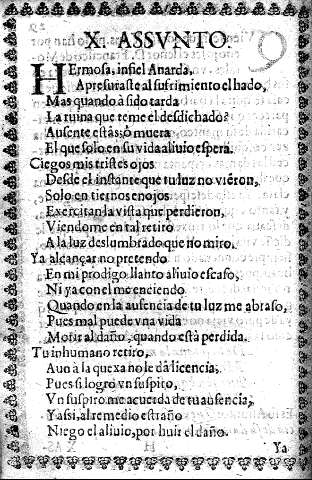 X. ASSVNTO.
9
HErmosa, infiel Anarda,
Apresuraste al sufrimiento el hado,
Mas quando à sido tarda
La ruina que teme el desdichado?
Ausente estàs; ò muera
El que solo en su vida aliuio espera.
Ciegos mis tristes ojos
Desde el instante que tu luz no vièron,
Solo en tiernos enojos
Exercitan la vista que perdieron,
Viendome en tal retiro
A la luz deslumbrado que no miro.
Ya alcançar no pretendo
En mi prodigo llanto aliuio escaso,
Ni ya con el me enciendo
Quando en la ausencia de tu luz me abraso,
Pues mal puede vna vida
Morir al daño, quando està perdida.
Tu inhumano retiro,
Aun à la quexa no le dà licencia,
Pues si logro vn suspiro,
Vn suspiro me acuerda de tu ausencia,
Y assi, al remedio estraño
Niego el aliuio, por huir el daño.
Ya